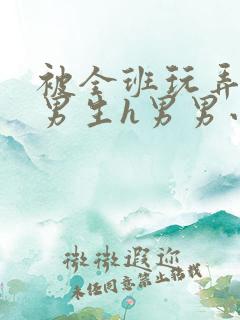 被全班玩弄
男生h男男小
微微遐迩
未经同意禁止转载